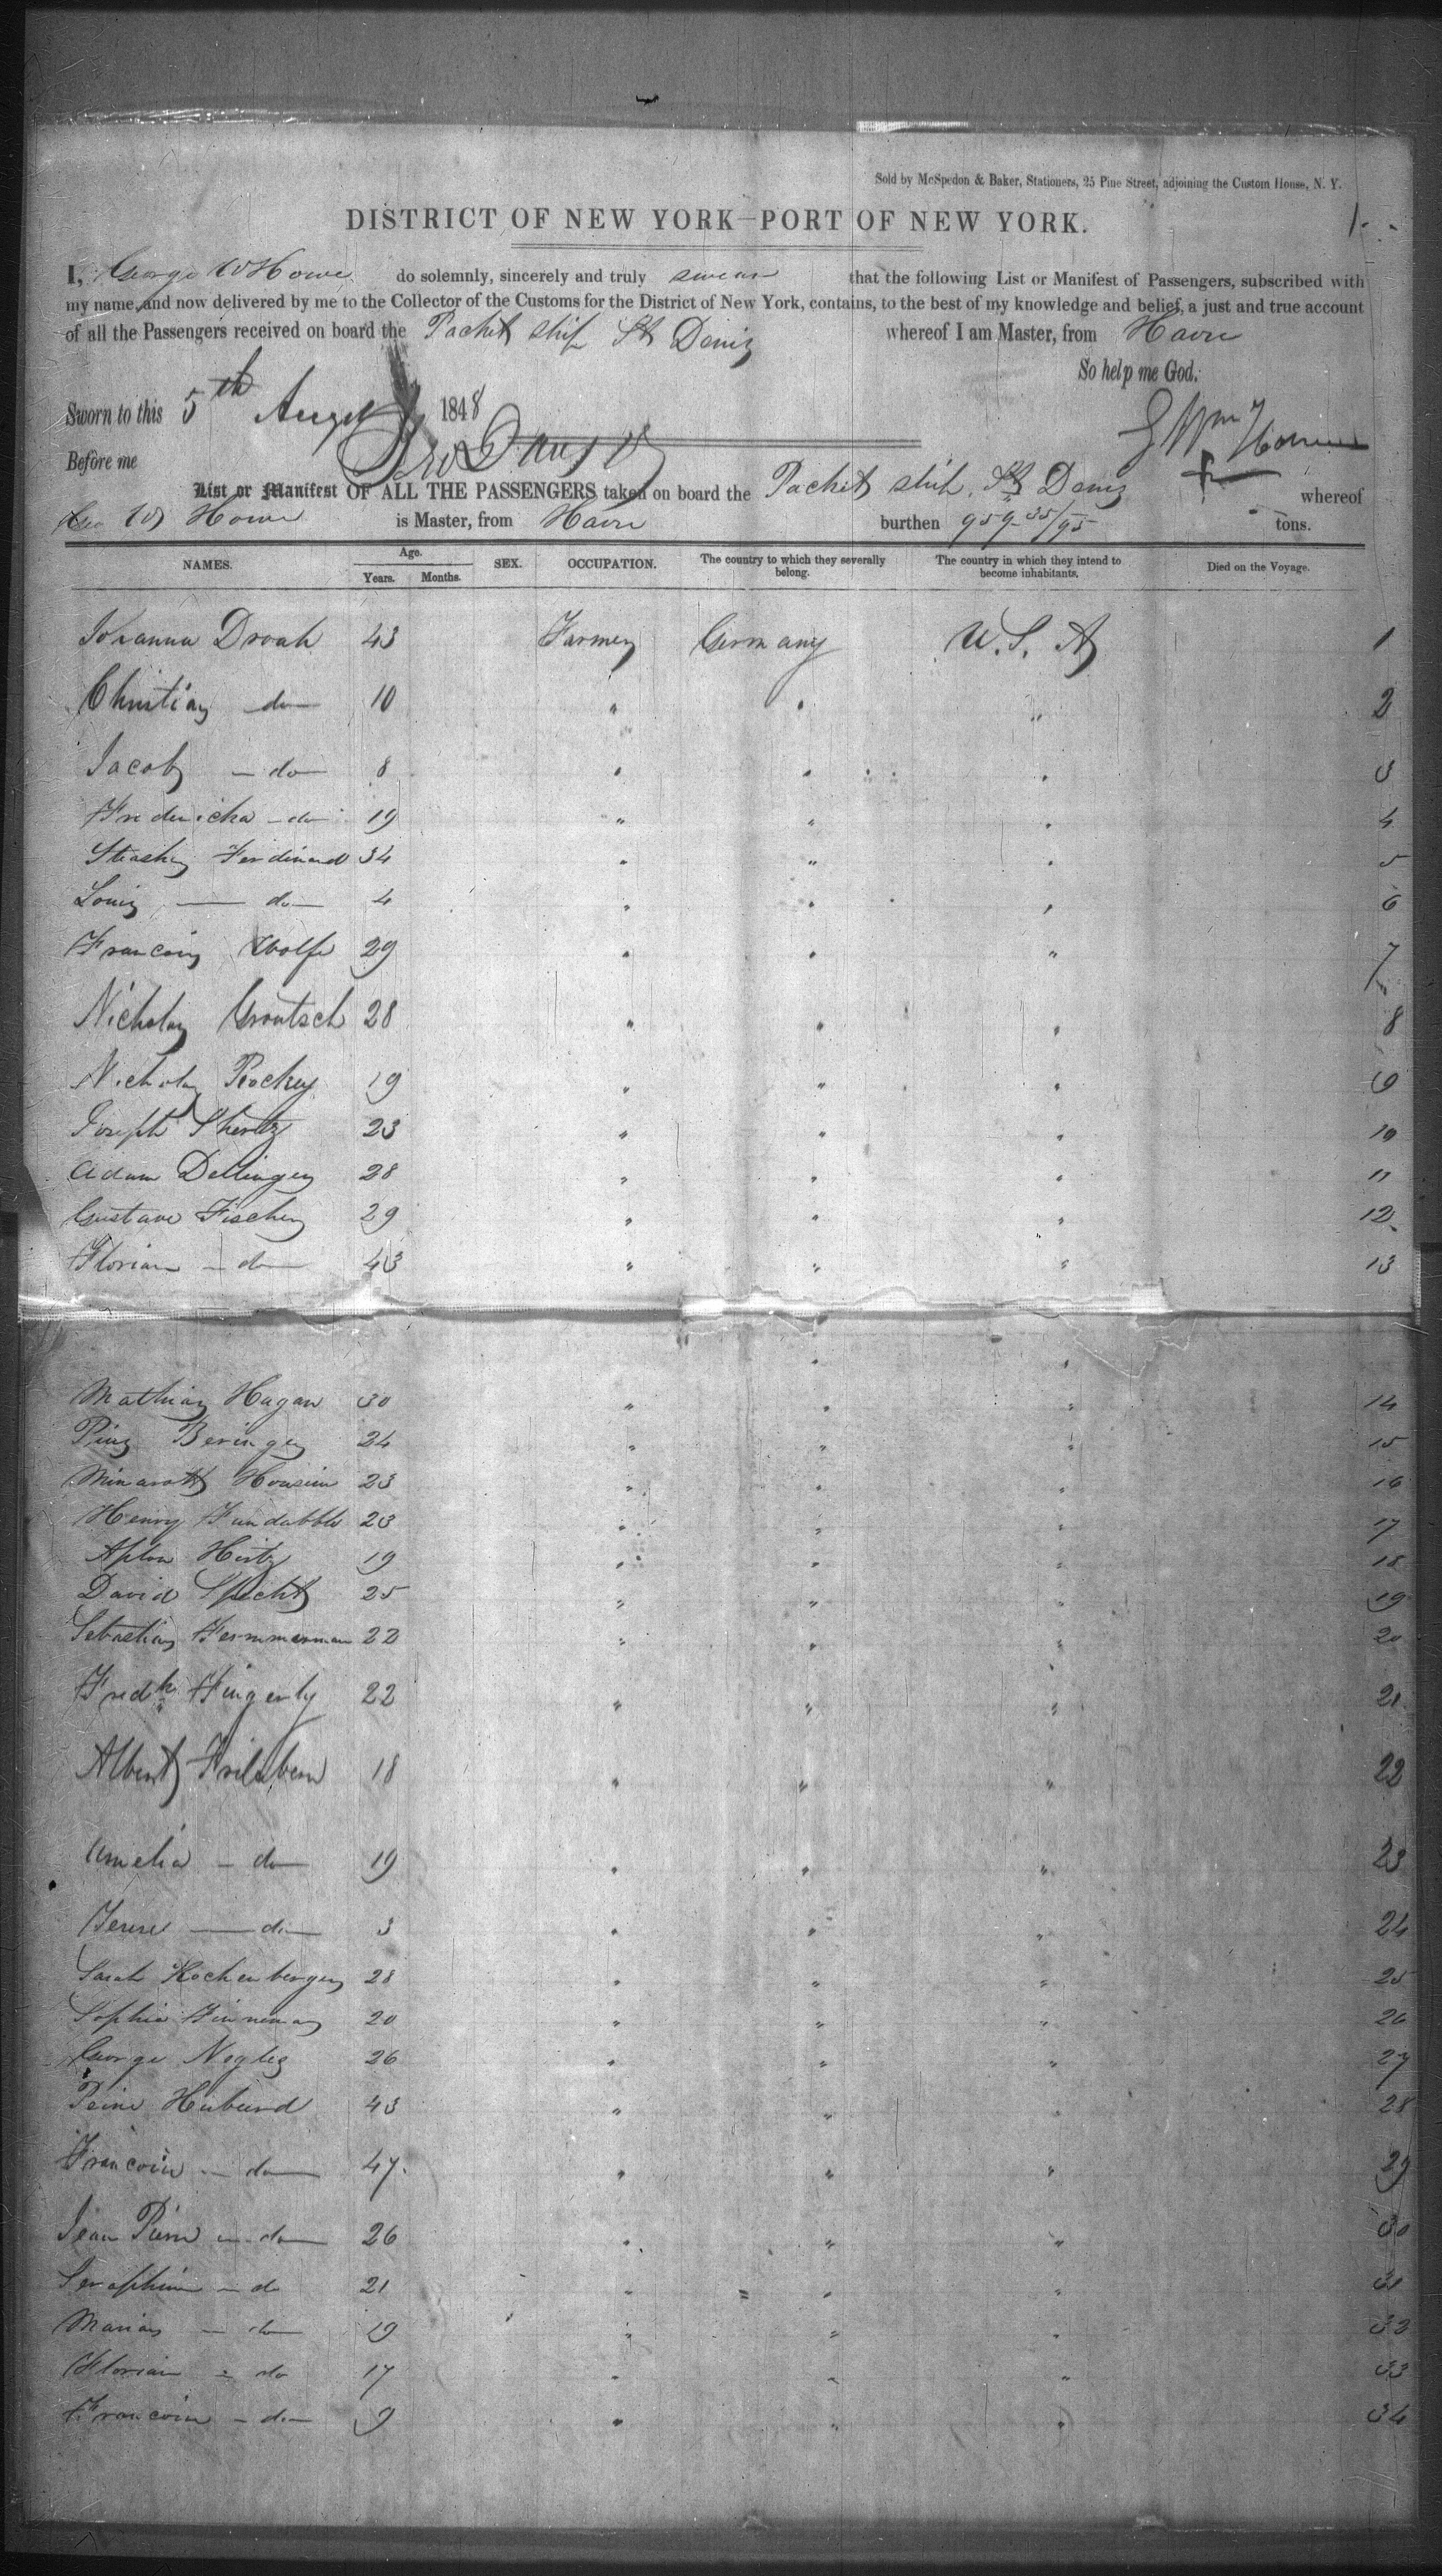 Sold by McSpedon & Baker, Stationers, 25 Pine Street, adjoining the Custom House, N. Y.
1.
DISTRICT OF NEW YORK—PORT OF NEW YORK.
I, George W Howe do solemnly, sincerely and truly swear that the following List or Manifest of Passengers, subscribed with
my name, and now delivered by me to the Collector of the Customs for the District of New York, contains, to the best of my knowledge and belief, a just and true account
of all the Passengers received on board the Packet ship St Denis whereof I am Master, from Havre
So help me God.
Sworn to this 5th August 1848
Before me
List or Manifest OF ALL THE PASSENGERS taken on board the Packet ship St Denis whereof
Geo W Howe is Master, from Havre burthen 959 35/95 tons.
NAMES. Age. Years. Months. SEX. OCCUPATION. The country to which they severally belong. The country in which they intend to become inhabitants. Died on the Voyage.
Johanna Droah 43 Farmer Germany U.S. A 1
Christian do 10 " " " 2
Jacob do 8 " " " 3
Fredericka do 19 " " " 4
Ferdinand 34 " " " 5
Louis do 4 " " " 6
Francois Wolfe 29 " " " 7
Nicholas Groutsch 28 " " " 8
Nicholas Rockey 19 " " " 9
Joseph Shertz 23 " " " 10
Adam Dellinger 28 " " " 11
Gustave Fischer 29 " " " 12
Florian do 43 " " " 13
Mathias Hagan 30 " " " 14
Pius Beringer 24 " " " 15
23 " " " 16
Henry 23 " " " 17
Hirtz 19 " " " 18
David Specht 25 " " " 19
Sebastian 22 " " " 20
Fredk Fingerly 22 " " " 21
Albert 18 " " " 22
Amelia do 19 " " " 23
do 3 " " " 24
Sarah Hochenberger 28 " " " 25
Sophia Finneman 20 " " " 26
George Negles 26 " " " 27
43 " " " 28
Francois do 47 " " " 29
Jean Pierre do 26 " " " 30
Seraphine do 21 " " " 31
Marian do 19 " " " 32
Florian do 17 " " " 33
Francois do 9 " " " 34